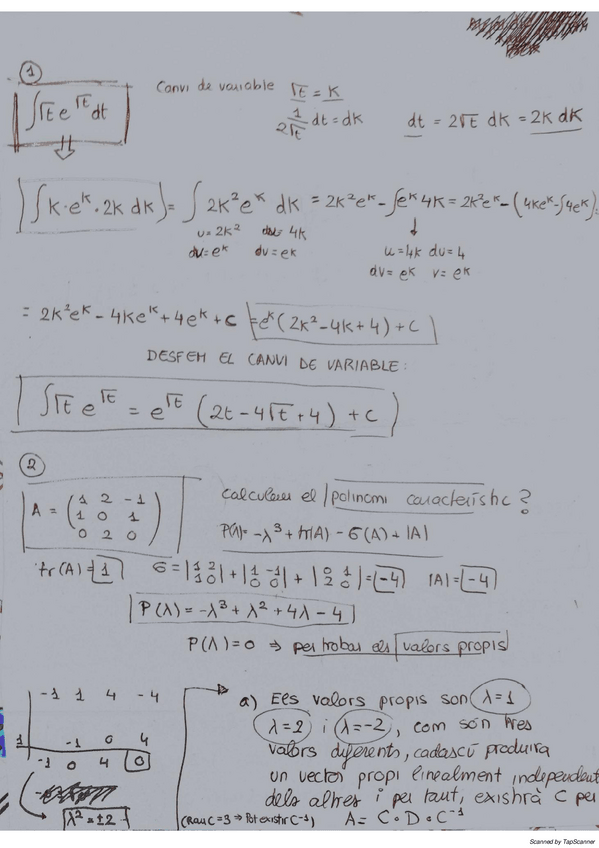 ①
∫√t e^√t dt
Canvi de variable √t = K
1/(2√t) dt = dK
dt = 2√t dK = 2K dK
∫K·e^K·2K dK = ∫2K²e^K dK = 2K²e^K - ∫e^K 4K = 2K²e^K - (4Ke^K - ∫4e^K) =
u = 2K² du = 4K
dv = e^K dv = e^K
u = 4K dv = 4
dv = e^K v = e^K
= 2K²e^K - 4Ke^K + 4e^K + C = e^K(2K² - 4K + 4) + C
DESFEM EL CANVI DE VARIABLE:
∫√t e^√t = e^√t (2t - 4√t + 4) + C
②
A = (1 2 -1
1 0 1
0 2 0)
Calculem el polinomi característic?
P(λ) = -λ³ + tr(A) - σ(A) + |A|
tr(A) = 1 σ = |1 2; 1 0| + |1 -1; 0 0| + |0 1; 2 0| = -4 |A| = -4
P(λ) = -λ³ + λ² + 4λ - 4
P(λ) = 0 ⇒ per trobar els valors propis
-1 1 4 -4
1 -1 0 4
-1 0 4 0
λ² = ±2
a) Els valors propis son λ=1
λ=2 i λ=-2, com són tres
valors diferents, cadascú produira
un vector propi linealment independent
dels altres i per tant, existirà C per
(Ran C = 3 ⇒ Pot existir C⁻¹) A = C·D·C⁻¹
Scanned by TapScanner